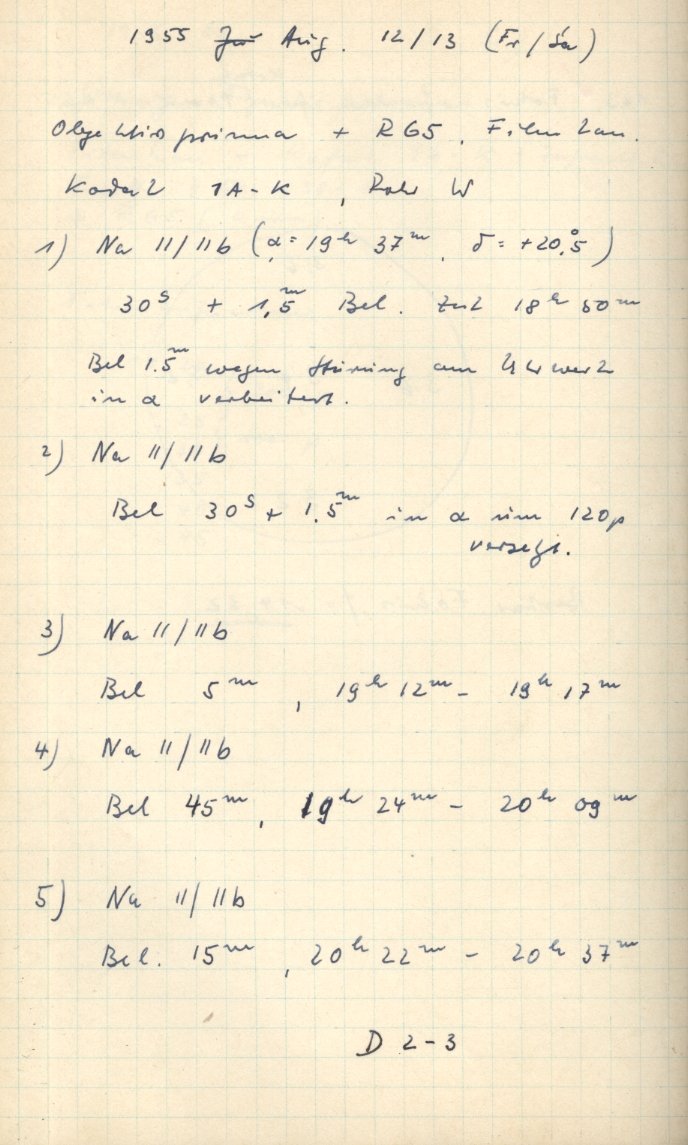 1955 Aug. 12/13 (Fr/Sa)
Objektivprisma + RG5, Film Lau.
Kodak 1A-K, Rohr W
1) Na 11/11b (α = 19h 37m, δ = +20°,5)
30s + 1,5m Bel. Zeit 18h 50m
Bel 1.5m wegen Störung am Uhrwerk
in α verbreitert.
2) Na 11/11b
Bel 30s + 1.5m in α um 120p
versetzt.
3) Na 11/11b
Bel 5m, 19h 12m - 19h 17m
4) Na 11/11b
Bel 45m, 19h 24m - 20h 09m
5) Na 11/11b
Bel. 15m, 20h 22m - 20h 37m
D 2-3